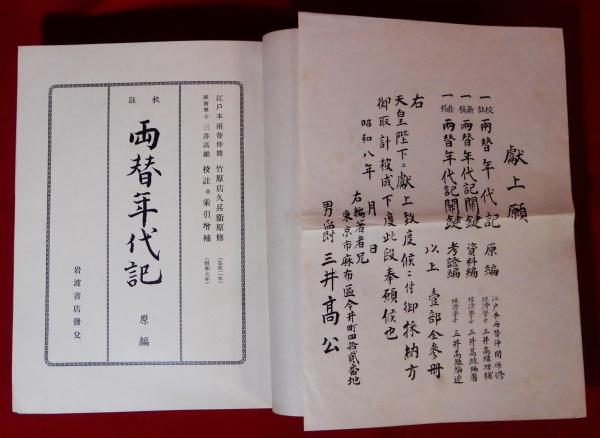 獻上願
一 校註 兩替年代記 原編 江戸本両替仲間原修 経済學士 三井高維増補
一 新稿 兩替年代記關鍵 資料編 経済學士 三井高維編著
一 新稿 兩替年代記關鍵 考證編 経済學士 三井高維編述
以上 壹部全参冊
右
天皇陛下ニ獻上致度候ニ付御採納方
御取計被成下度此段奉願候也
昭和八年 月 日
右編著者兄
東京市麻布區今井町四拾貳番地
男爵 三井高公
江戸本兩替仲間 竹原店久兵衞原修 (弘化二年)
經濟學士 三井高維 校註並索引增補 (昭和七年)
校註
兩替年代記 原編
岩波書店發兌